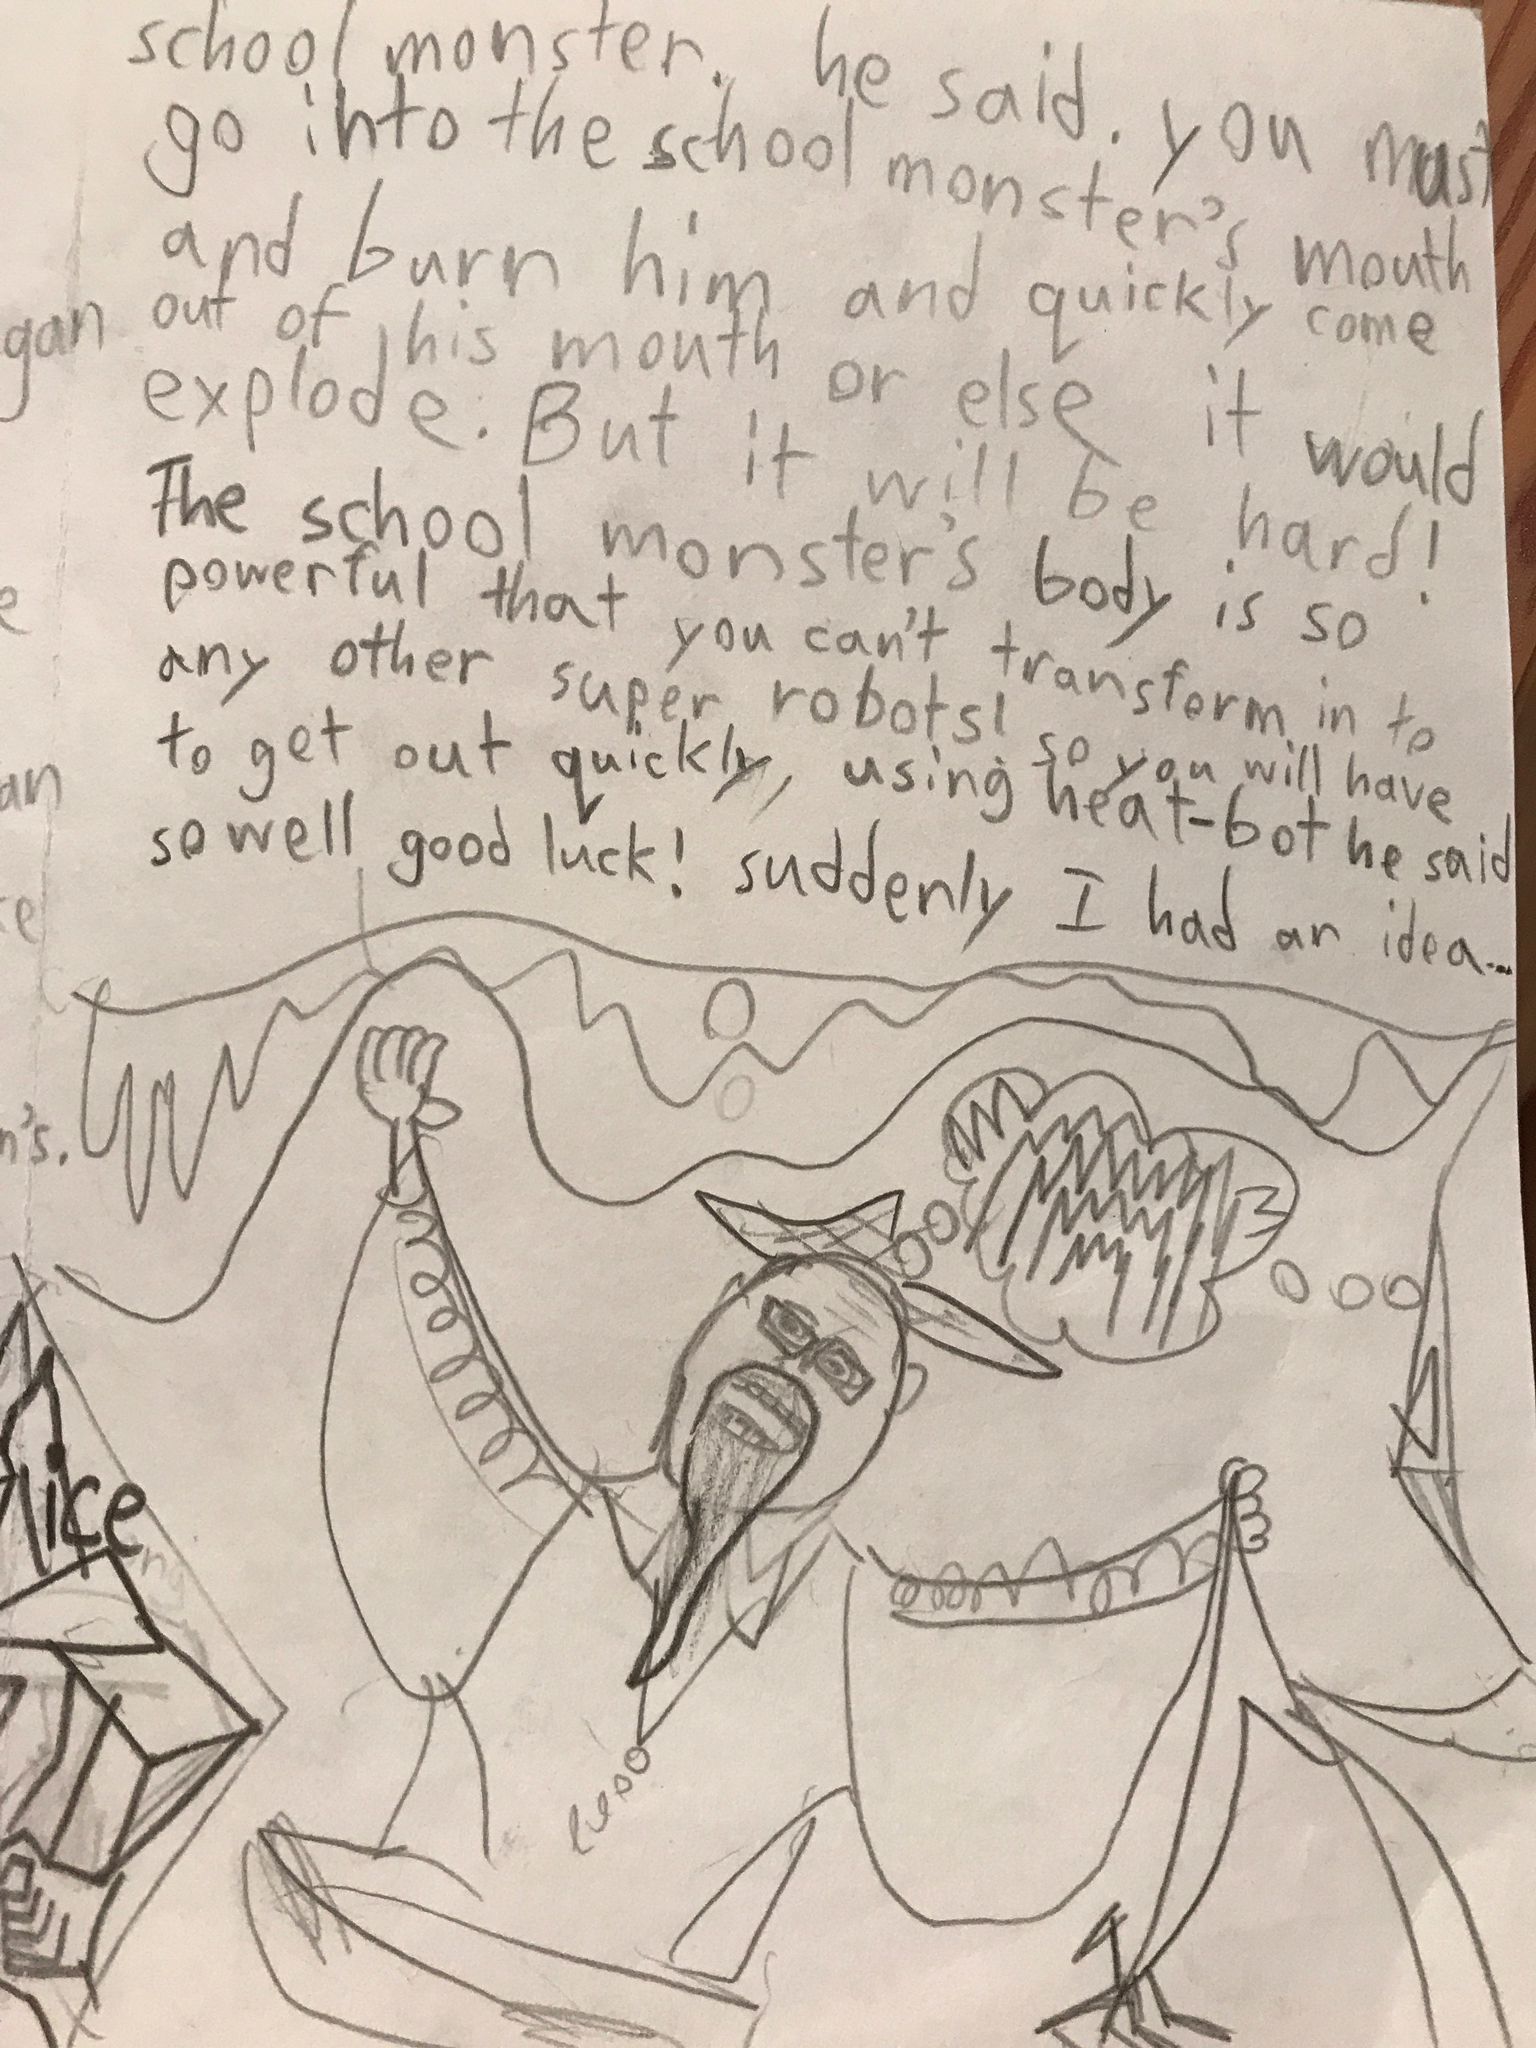 school monster. he said. you must
go into the school monster's mouth
and burn him and quickly come
out of his mouth or else it would
explode. But it will be hard!
The school monster's body is so
powerful that you can't transform in to
any other super robots! so you will have
to get out quickly, using heat-bot he said
so well good luck! suddenly I had an idea...
gan
e
an
n's.
lice